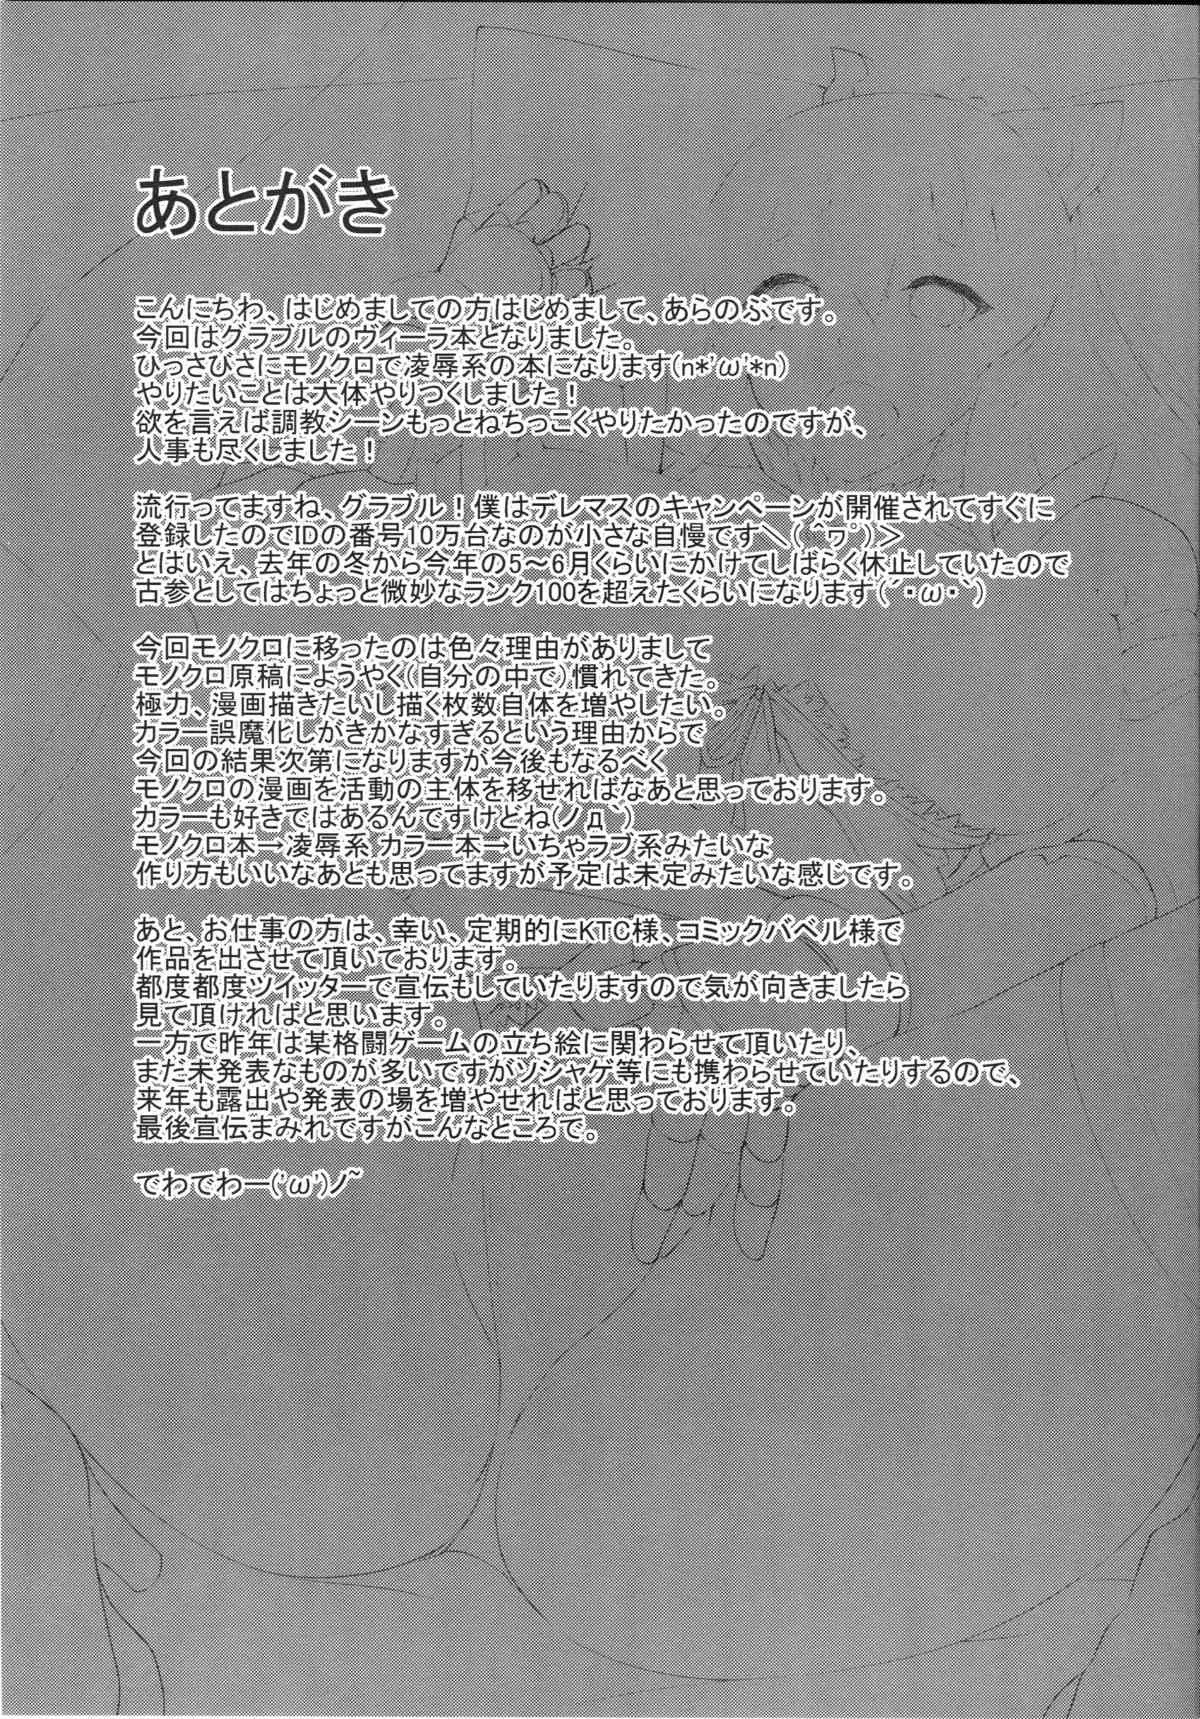 あとがき
こんにちわ、はじめましての方はじめまして、あらのぶです。
今回はグラブルのヴィーラ本となりました。
ひっさびさにモノクロで凌辱系の本になります(n*'ω'*n)
やりたいことは大体やりつくしました！
欲を言えば調教シーンもっとねちっこくやりたかったのですが、
人事も尽くしました！
流行ってますね、グラブル！僕はデレマスのキャンペーンが開催されてすぐに
登録したのでIDの番号10万台なのが小さな自慢です＼(^ヮ°)＞
とはいえ、去年の冬から今年の5～6月くらいにかけてしばらく休止していたので
古参としてはちょっと微妙なランク100を超えたくらいになります(´・ω・`)
今回モノクロに移ったのは色々理由がありまして
モノクロ原稿にようやく(自分の中で)慣れてきた。
極力、漫画描きたいし描く枚数自体を増やしたい。
カラー誤魔化しがきかなすぎるという理由からで
今回の結果次第になりますが今後もなるべく
モノクロの漫画を活動の主体を移せればなあと思っております。
カラーも好きではあるんですけどね(ノд`)
モノクロ本→凌辱系 カラー本→いちゃラブ系みたいな
作り方もいいなあとも思ってますが予定は未定みたいな感じです。
あと、お仕事の方は、幸い、定期的にKTC様、コミックバベル様で
作品を出させて頂いております。
都度都度ツイッターで宣伝もしていたりますので気が向きましたら
見て頂ければと思います。
一方で昨年は某格闘ゲームの立ち絵に関わらせて頂いたり、
まだ未発表なものが多いですがソシャゲ等にも携わらせていたりするので、
来年も露出や発表の場を増やせればと思っております。
最後宣伝まみれですがこんなところで。
でわでわー('ω')ノ~